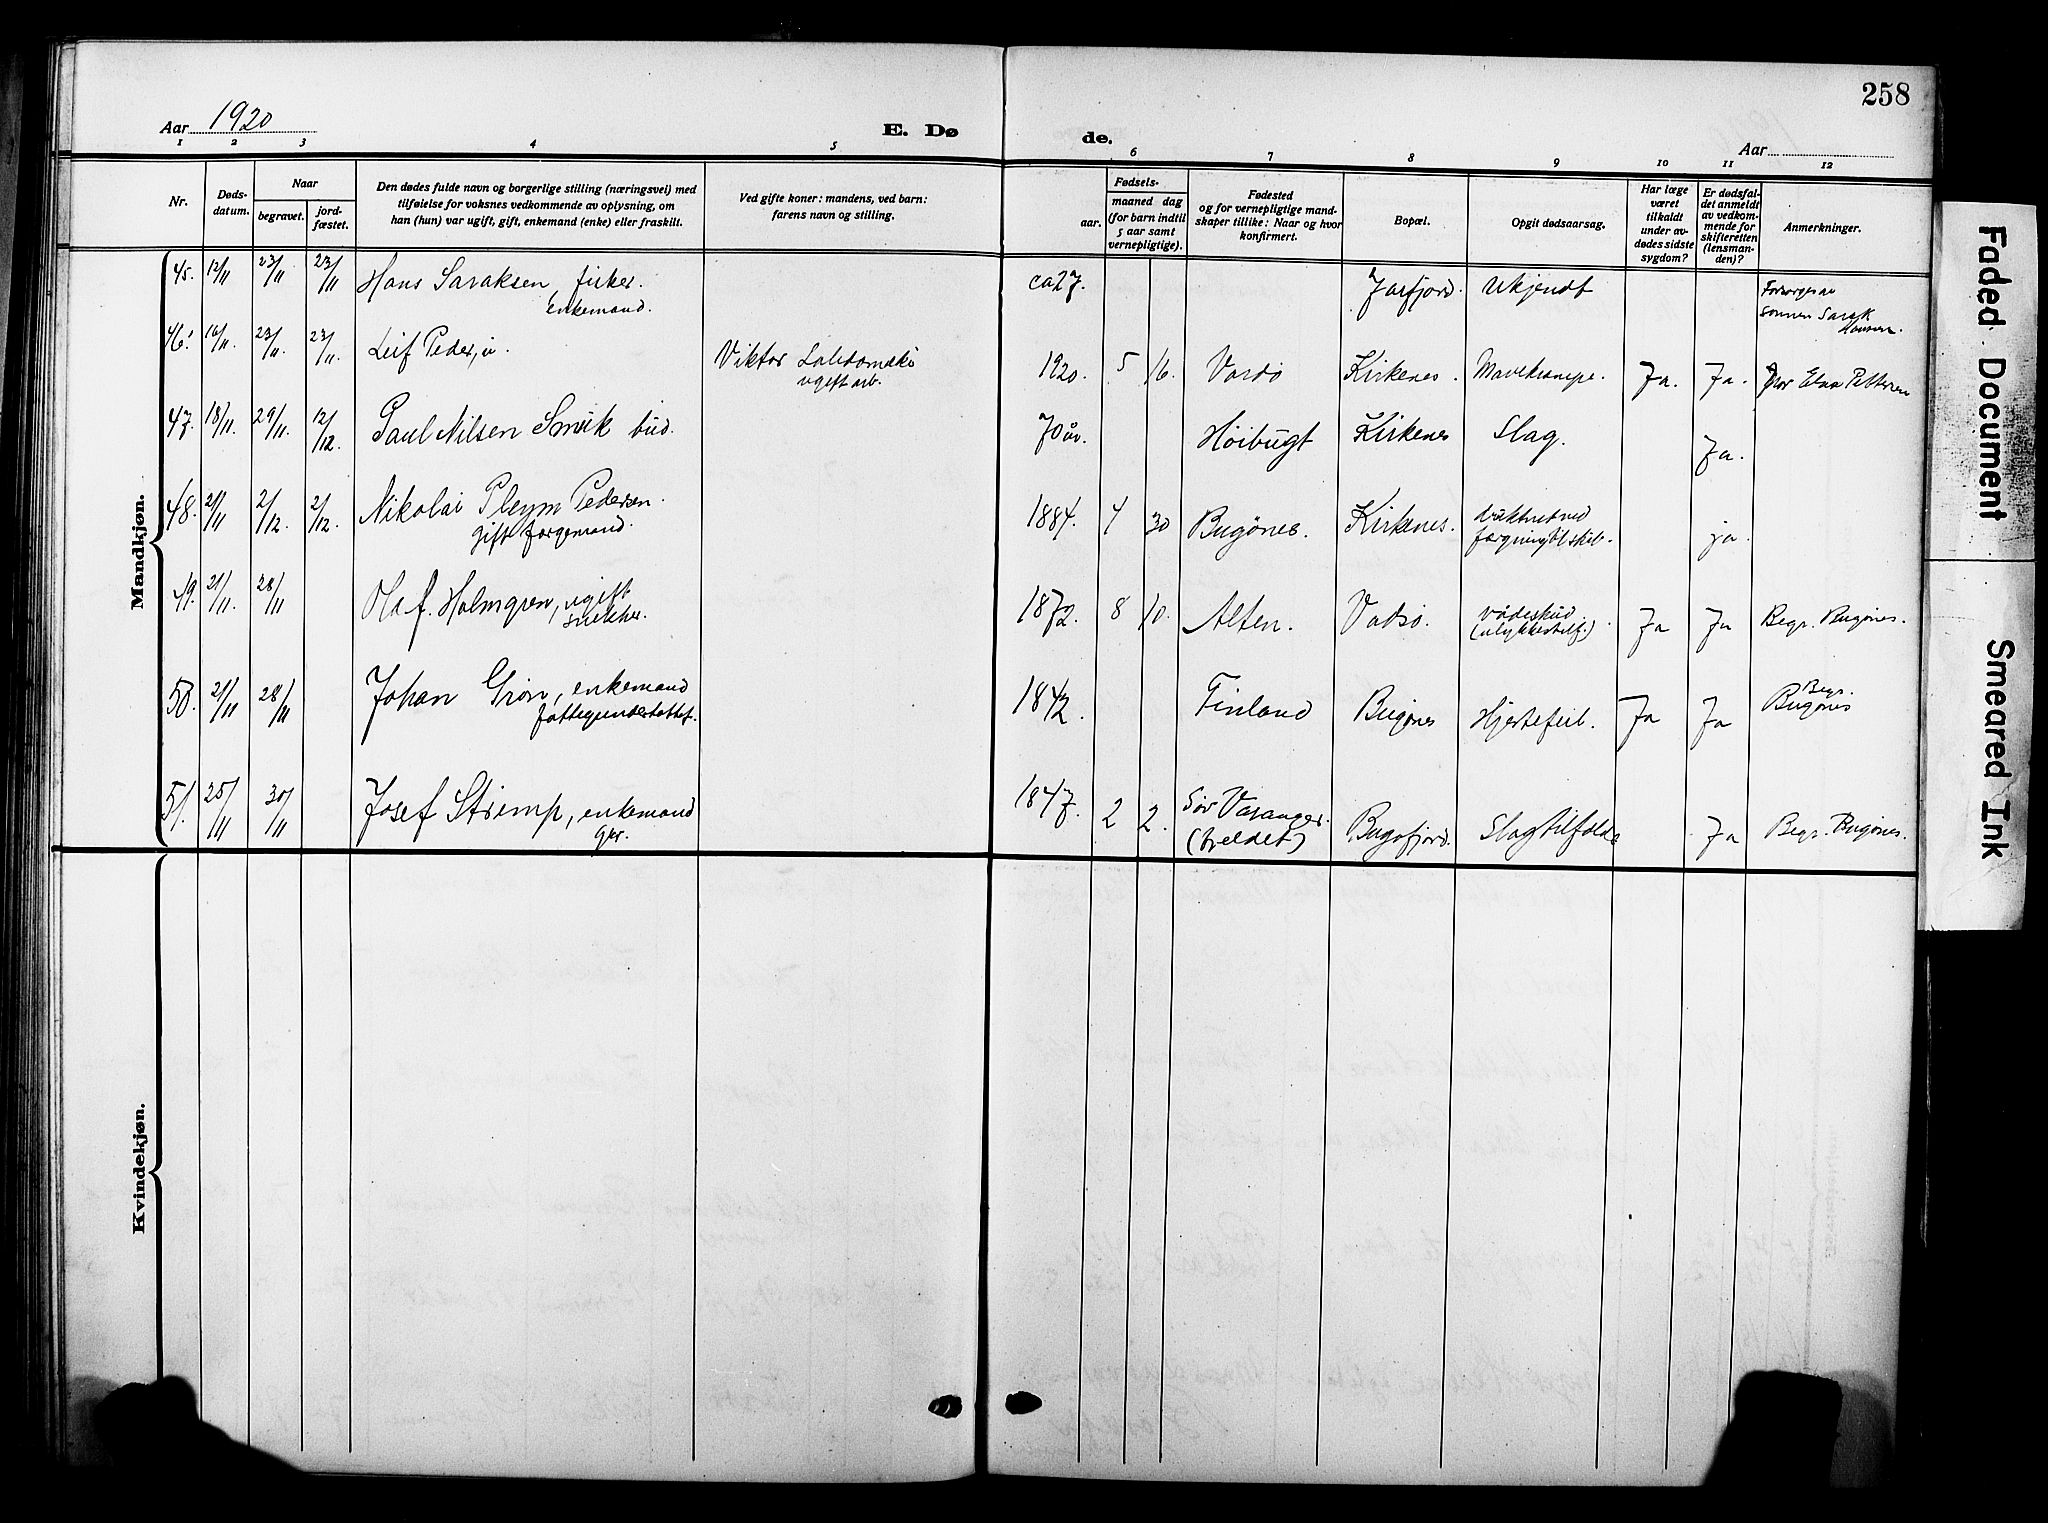 258
Aar 1920
E. Dø
de.
Aar
1 2 3 4 5 6 7 8 9 10 11 12
Nr.
Døds-
datum.
Naar
begravet.
jord-
fæstet.
Den dødes fulde navn og borgerlige stilling (næringsvei) med
tilføielse for voksnes vedkommende av oplysning, om
han (hun) var ugift, gift, enkemand (enke) eller fraskilt.
Ved gifte koner: mandens, ved barn:
farens navn og stilling.
Fødsels-
aar.
maaned dag
(for barn indtil
5 aar samt
vernepligtige).
Fødested
og for vernepligtige mand-
skaper tillike: Naar og hvor
konfirmert.
Bopæl.
Opgit dødsaarsag.
Har læge
været
tilkaldt
under av-
dødes sidste
sygdom?
Er dødsfal-
det anmeldt
av vedkom-
mende for
skifteretten
(lensman-
den)?
Anmerkninger.
Mandkjøn.
45. 12/11 23/11 23/11 Hans Saraksen, fisker. ca 27. Jarfjord. Ukjendt
enkemand.
sønnen Sarak
Hansen.
46. 23/11. 23/11. Leif Peder, u.
Viktor
ugift arb.
1920. 5 16. Vardö Kirkenes. Mavekrampe. Ja. Ja. Mor Elna Pettersen
47. 18/11. 29/11. 12/12 Paul Nilsen Smuk bud. 70 år. Höibugt Kirkenes Slag. Ja.
48. 21/11 2/12. 2/12. Nikolai Pleym Pedersen. 1884. 4 30 Bugönes. Kirkenes. ja.
gift forgemand.
49. 21/11. 28/11 Olaf. Holmgren, ugift 1872. 8 10. Alten. Vadsö. vådeskud Ja Ja Begr. Bugönes.
snekker. (ulykkestilf.)
50. 21/11 28/11 Johan Grön, enkemand 1842. Finland Bugönes Hjertefeil. Ja Ja Begr.
Bugönes
fattigunderstöttet.
51. 25/11 30/11 Josef Strimp, enkemand 1847. 2 2. Sör Varanger. Bugöfjord. Slagtilfelde Ja Begr. Bugönes.
gbr.
Kvindekjøn.
Faded Document
Smeared Ink